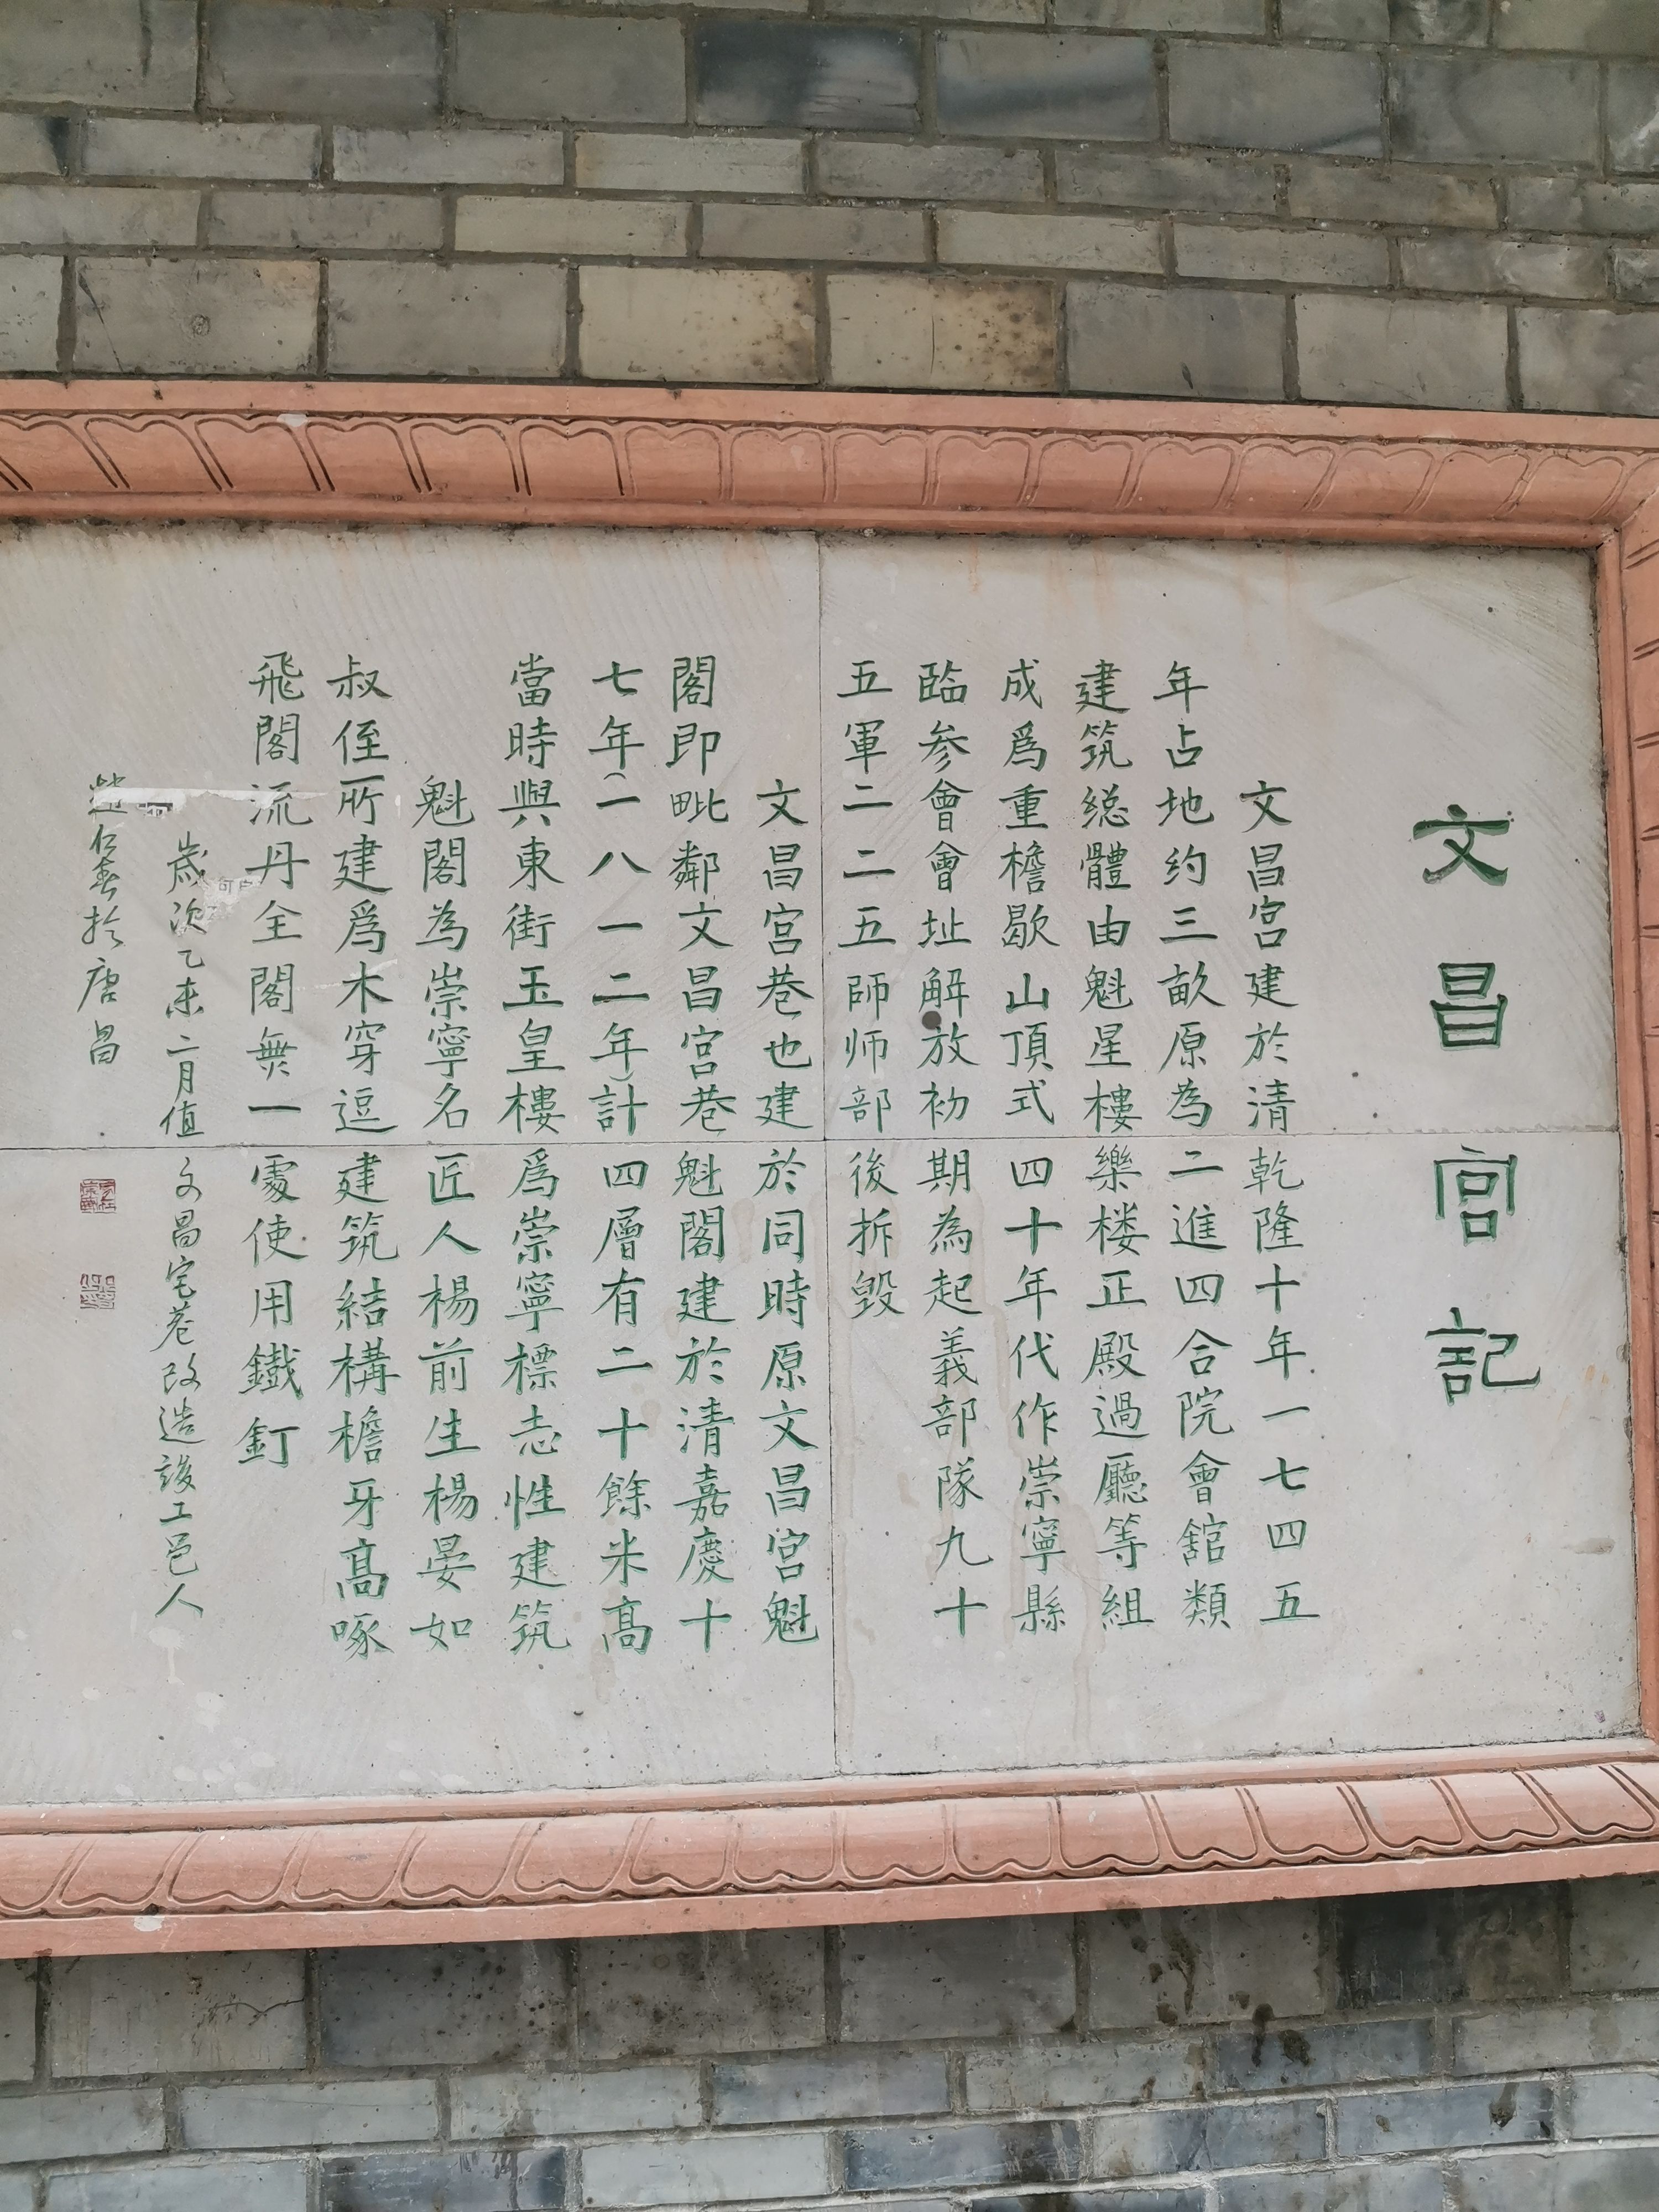 文昌宫記
文昌宫建於清乾隆十年一七四五
年占地约三畝原為二進四合院會舘類
建筑総體由魁星樓樂楼正殿過廳等組
成爲重檐歇山頂式四十年代作崇寧縣
臨参會會址解放初期為起義部隊九十
五軍二二五師师部後拆毁
文昌宫巷也建於同時原文昌宫魁
閣即毗鄰文昌宫巷魁閣建於清嘉慶十
七年(一八一二年)計四層有二十餘米高
當時與東街玉皇樓爲崇寧標志性建筑
魁閣為崇寧名匠人楊前生楊晏如
叔侄所建爲木穿逗建筑結構檐牙高啄
飛閣流丹全閣無一處使用鐵釘
歲次乙未二月值文昌宫巷改造竣工邑人
於唐昌